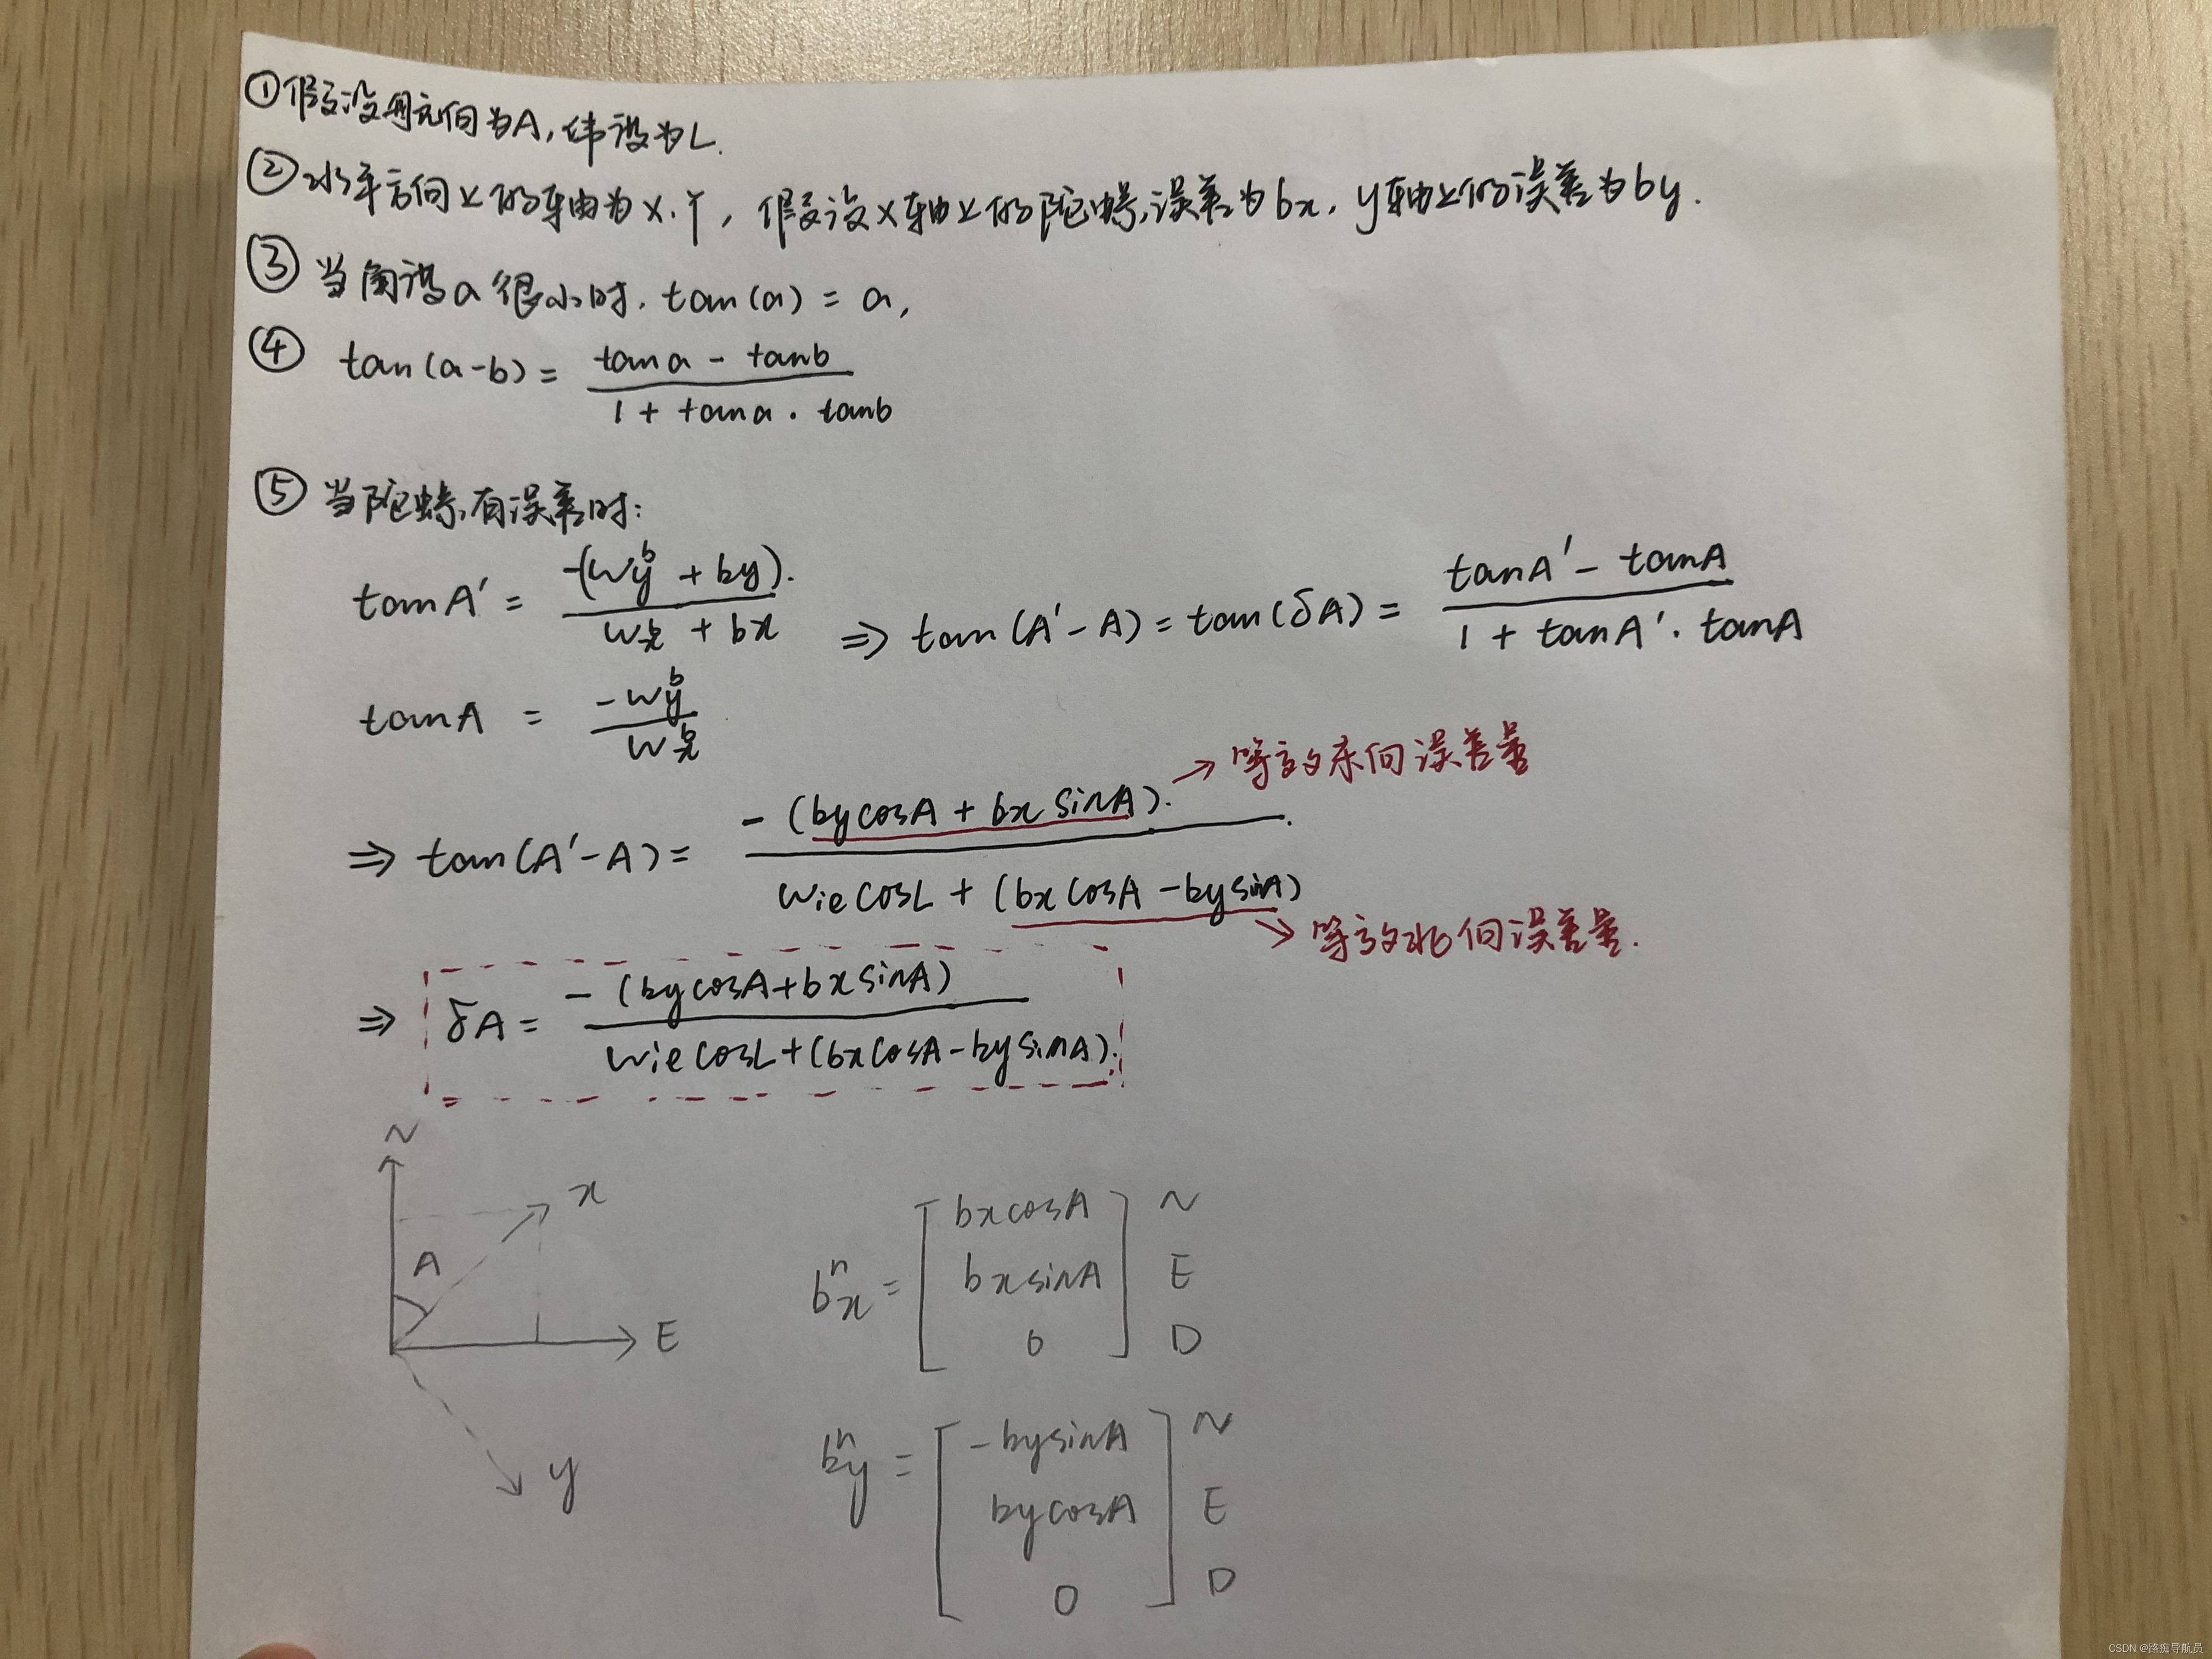 ①假设航向为A,纬度为L.
②水平方向上的轴为X.Y,假设X轴上的陀螺误差为bx,y轴上的误差为by.
③当角度a很小时.tan(a)=a,
④ tan(a-b)= (tana - tanb)/(1 + tana · tanb)
⑤当陀螺有误差时:
tanA′ = -(w_y^b + by)/(w_x^b + bx) ⇒ tan(A′-A)=tan(δA)= (tanA′ - tanA)/(1 + tanA′·tanA)
tanA = -w_y^b/w_x^b
→等效东向误差量
⇒ tan(A′-A)= -(bycosA + bx sinA)/(wie cosL + (bx cosA - by sinA))
→等效北向误差量.
⇒ δA= -(bycosA+bx sinA)/(wie cosL+(bx cosA-by sinA))
N
x
A
E
y
b_x^n = [bxcosA N
bxsinA E
0] D
b_y^n = [-bysinA N
bycosA E
0] D
CSDN @路痴导航员